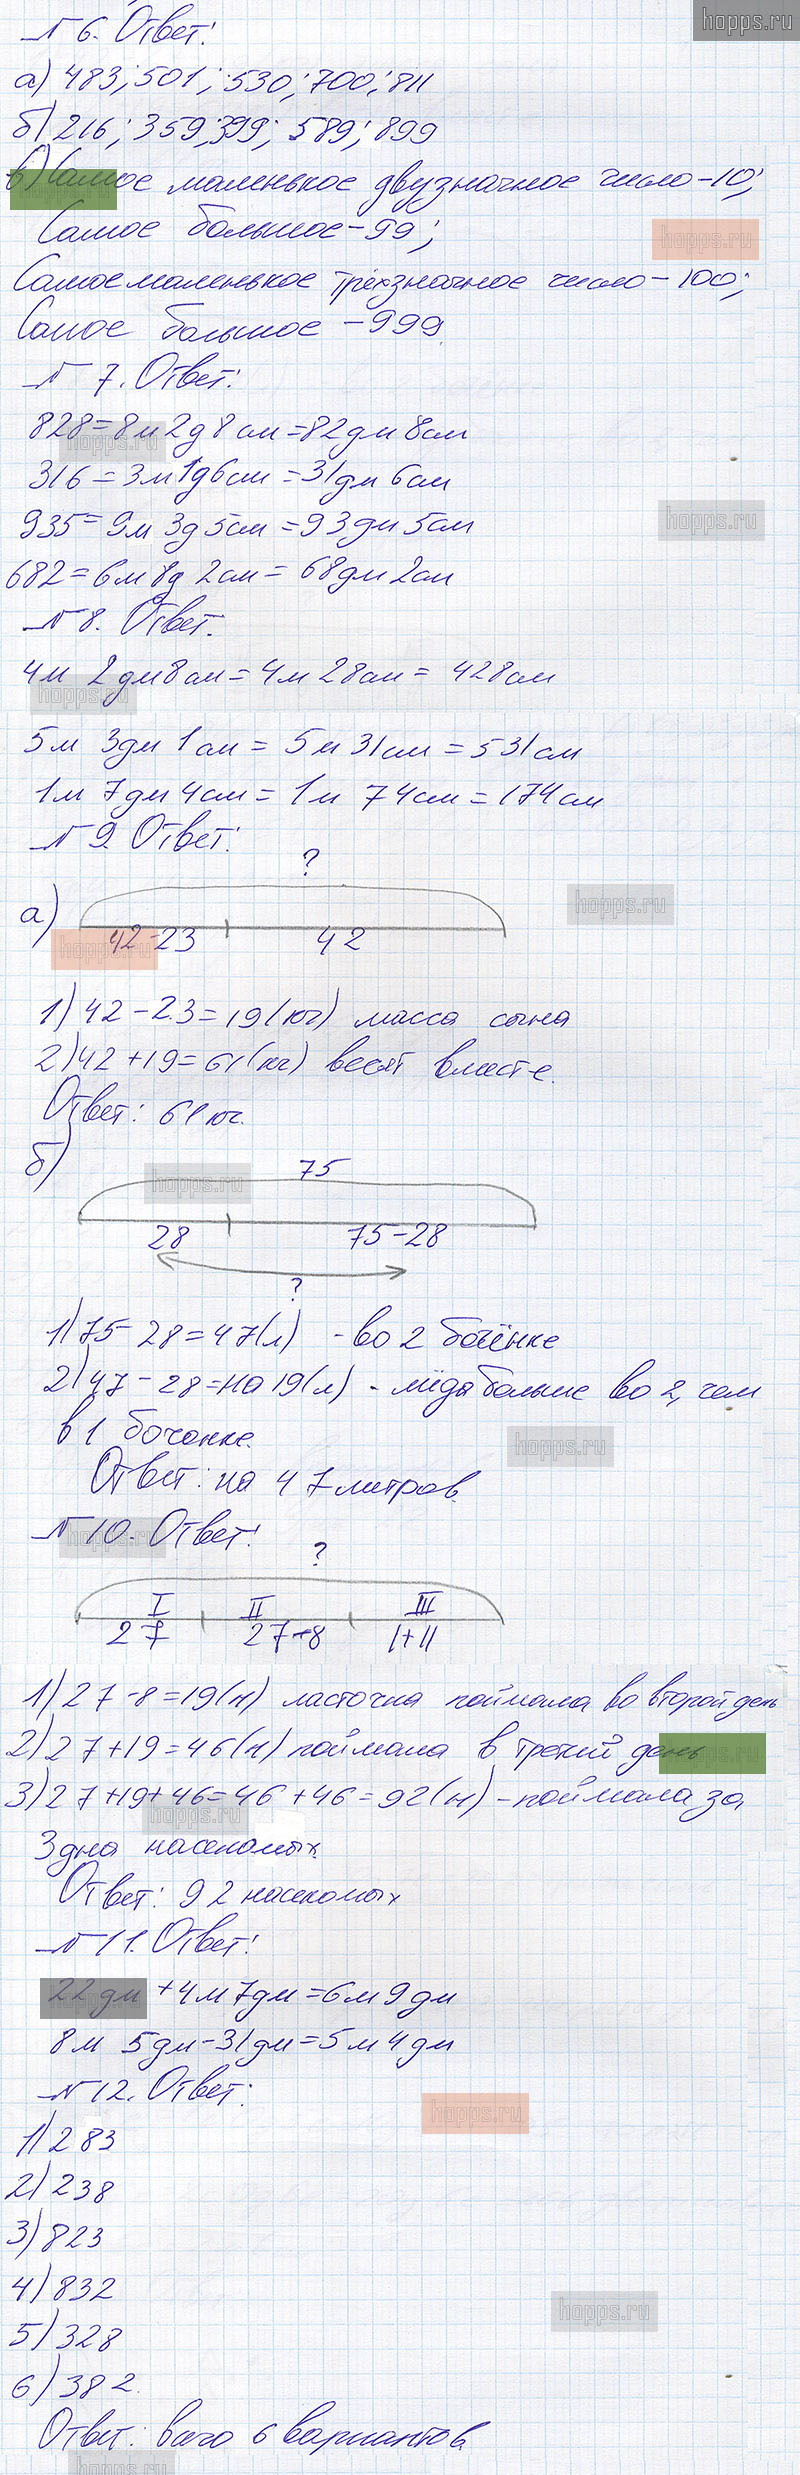 hopps.ru
№ 6. Ответ:
а) 483; 501; 530; 700; 811
б) 216; 359; 399; 589; 899
в) Самое маленькое двузначное число - 10;
Самое большое - 99;
hopps.ru
Самое маленькое трёхзначное число - 100;
Самое большое - 999
№ 7. Ответ:
828 = 8м 2д 8см = 82дм 8см
hopps.ru
316 = 3м 1д 6см = 31дм 6см
935 = 9м 3д 5см = 93дм 5см
hopps.ru
682 = 6м 8д 2см = 68дм 2см
№ 8. Ответ.
4м 2дм 8см = 4м 28см = 428см
hopps.ru
5м 3дм 1см = 5м 31см = 531см
1м 7дм 4см = 1м 74см = 174см
№ 9 Ответ:
?
hopps.ru
а)
42-23 42
hopps.ru
1) 42 - 23 = 19(кг) масса сына
2) 42 + 19 = 61(кг) весят вместе.
Ответ: 61кг.
б)
75
hopps.ru
28 75-28
?
1) 75 - 28 = 47(л) - во 2 бочёнке
2) 47 - 28 = на 19(л) - мёда больше во 2, чем
в 1 бочонке.
hopps.ru
Ответ: на 47 литров.
№ 10. Ответ:
hopps.ru
?
I II III
27 27-8 I+II
1) 27 - 8 = 19(н) ласточка поймала во второй день
2) 27 + 19 = 46(н) поймала в третий день
hopps.ru
3) 27 + 19 + 46 = 46 + 46 = 92(н) - поймала за
hopps.ru
3 дня насекомых.
Ответ: 92 насекомых
№ 11. Ответ:
22 дм + 4м 7дм = 6м 9дм
8м 5дм - 31дм = 5м 4дм
№ 12. Ответ:
hopps.ru
1) 283
2) 238
3) 823
4) 832
hopps.ru
5) 328
6) 382.
Ответ: всего 6 вариантов.
hopps.ru